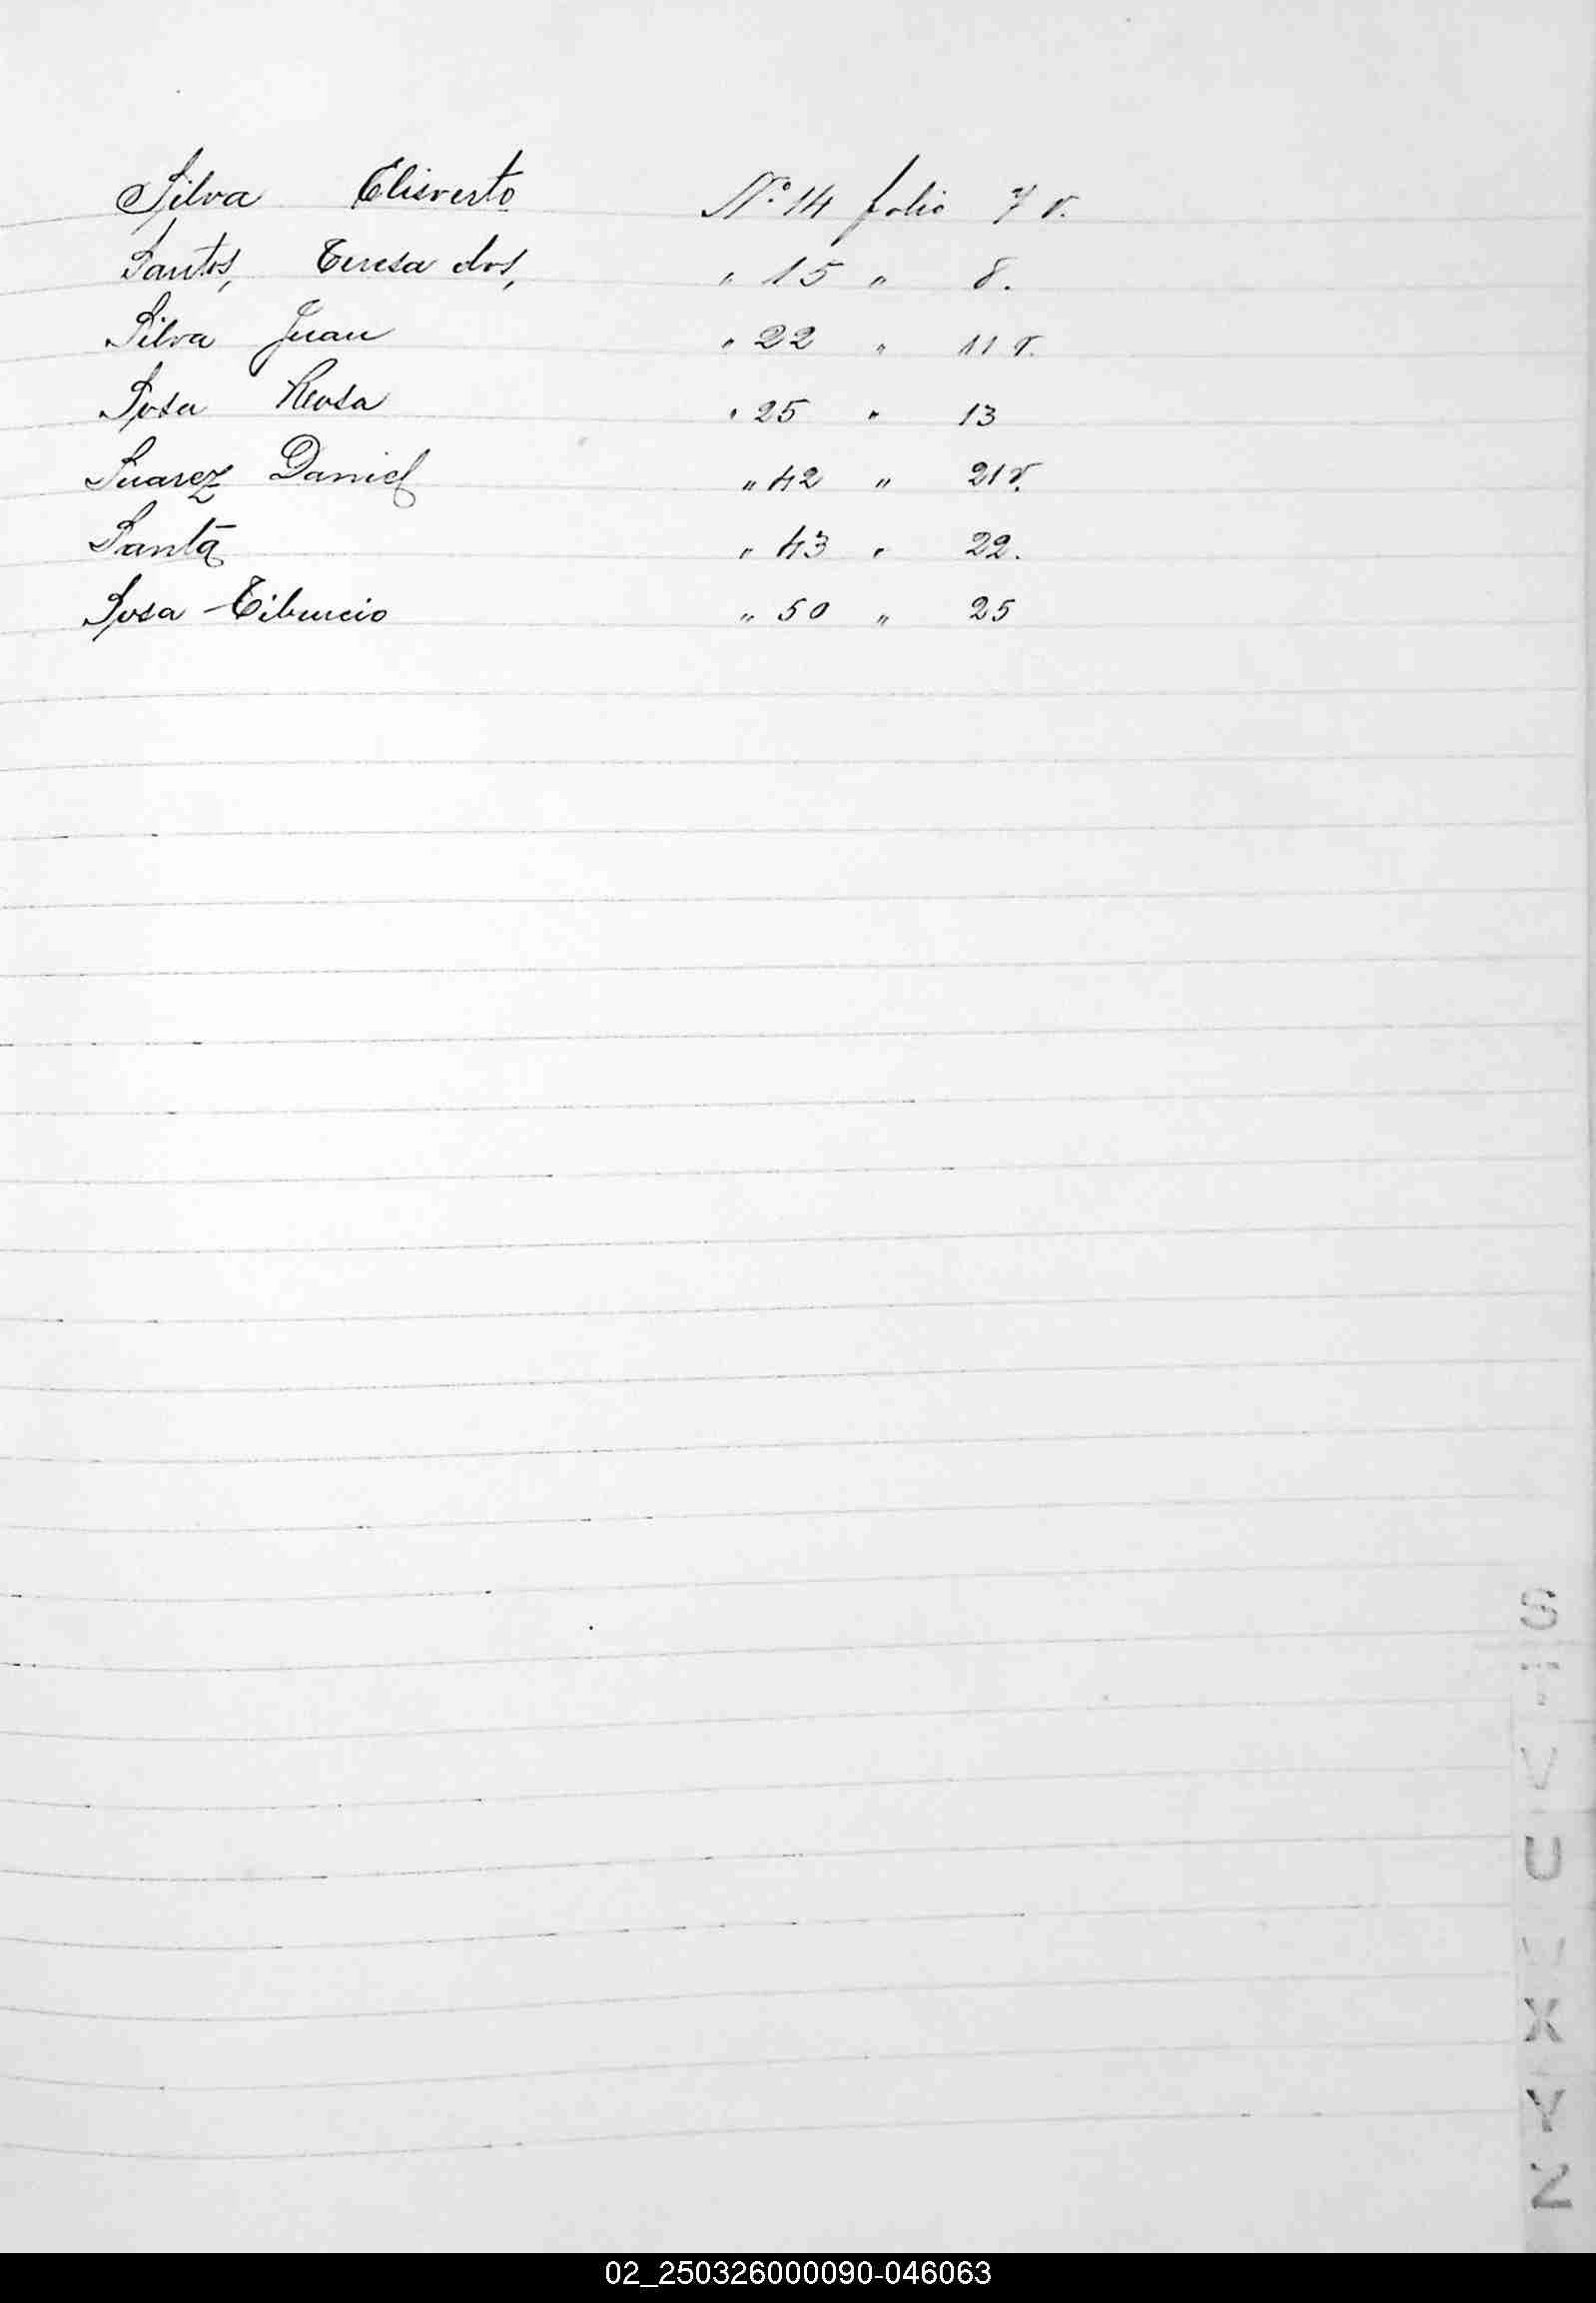 Silva Elisverto Nº 14 folio 7 v.
Santos, Teresa dos, " 15 " 8.
Silva Juan " 22 " 11 v.
Sosa Rosa " 25 " 13
Suarez Daniel " 42 " 21 v.
Santa " 43 " 22.
Sosa Tiburcio " 50 " 25
S
T
V
U
W
X
Y
Z
02_250326000090-046063